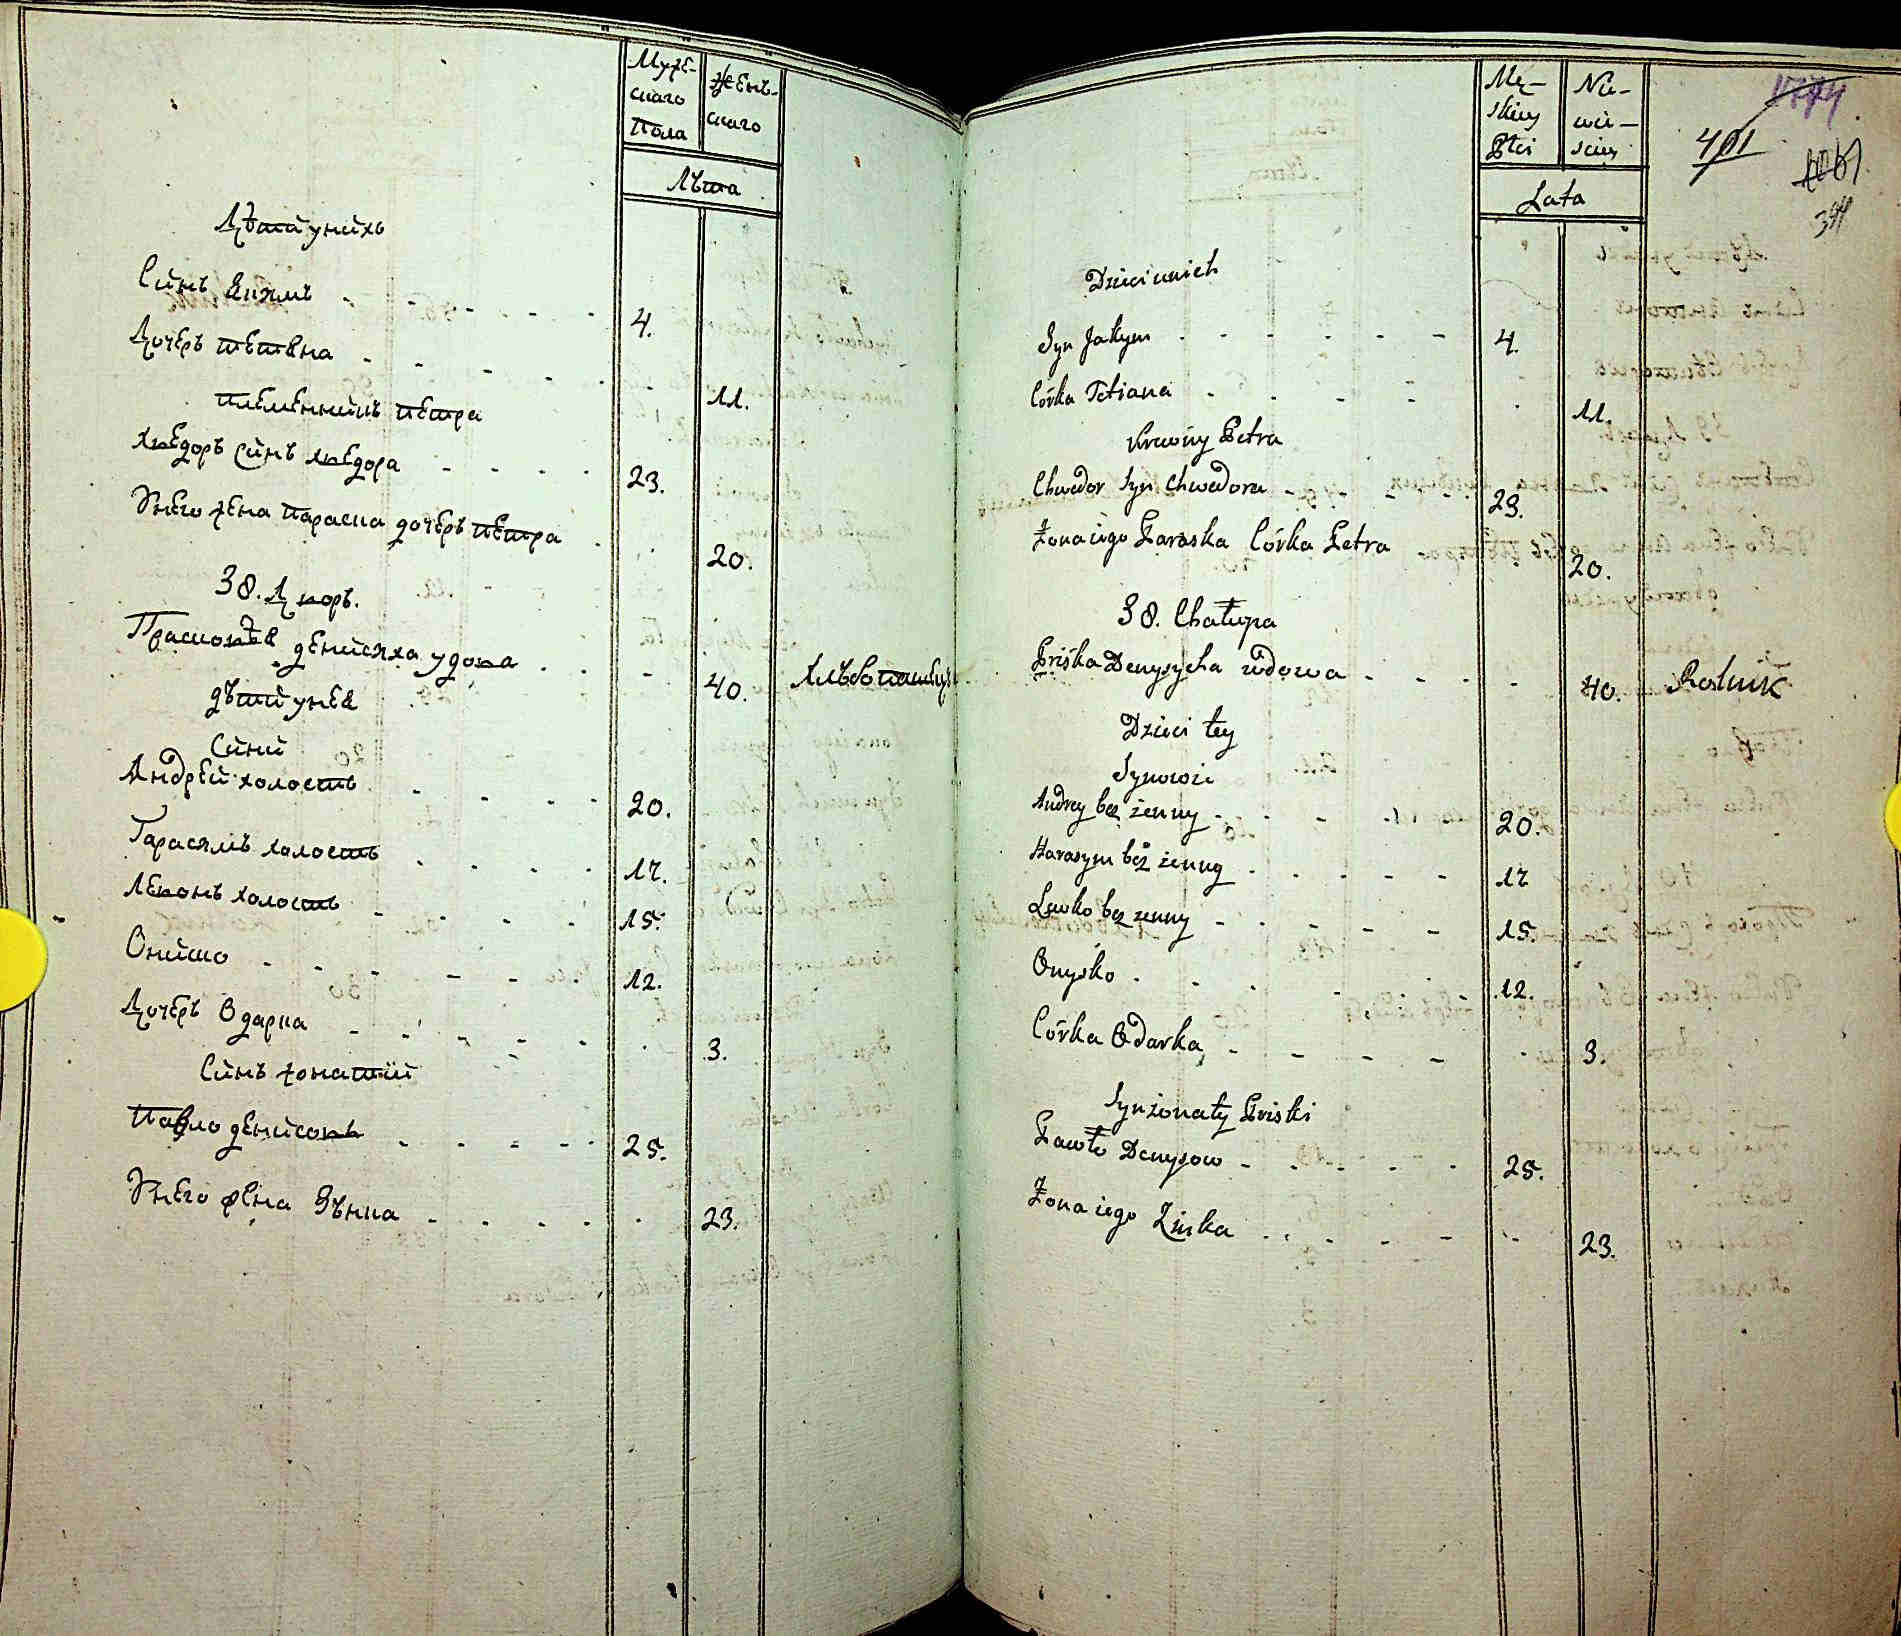 Муже-
скаго
пола
Женъ-
скаго
Лѣта
Дѣти унихъ
Синъ Якимъ 4.
Дочерь тетяна 11.
племенникъ петра
Хведоръ синъ хведора 23.
Унего жена параска дочерь петра 20.
38. Дворъ.
денисиха удова 40. Хлѣбопашецъ
дѣти унея
Сини
Андрей холостъ 20.
Гарасимъ холостъ 17.
Левонъ холостъ 15.
Ониско 12.
Дочерь Одарка 3.
Синъ жонатий
Павло денисовъ 25.
Унего жена Зѣнка 23.
Mę-
skiey
Płci
Nie-
wie-
sciey
Lata
401
394
Dzieci unich
Syn Jakym 4.
Córka Tetiana 11.
Krewny Petra
Chwedor Syn Chwedora 23.
Żona iego Paraska Córka Petra 20.
38. Chałupa
Priska Denysycha wdowa 40. Rolnik
Dzieci tey
Synowie
Andrey bez żenny 20.
Harasym bez żenny 17
Lewko bez żenny 15.
Onysko 12.
Córka Odarka 3.
Syn żonaty Priski
Pawło Denysow 25.
Żona iego Zinka 23.